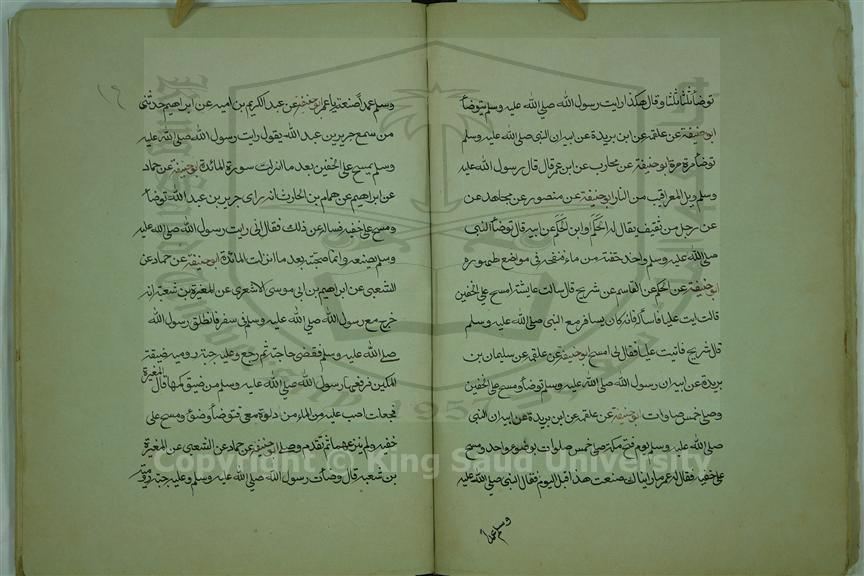 توضأ ثلثا ثلثا وقال هكذا رايت رسول الله صلي الله عليه وسلم يتوضأ
ابوحنيفة عن علقمة عن ابن بريدة عن ابيه ان النبي صلي الله عليه وسلم
توضأ مرة مرة ابوحنيفة عن محارب عن ابن عمر قال قال رسول الله عليه
وسلم ويل للعراقيب من النار ابوحنيفة عن منصور عن مجاهد عن
عن رجل من ثقيف يقال له الحكم او ابن الحكم عن ابيه قال توضأ النبي
صلي الله عليه وسلم واخذ حفنة من ماء فنضحه في مواضع طهوره
ابوحنيفة عن الحكم عن القاسم عن شريح قال سالت عايشة امسح علي الخفين
قالت ايت عليا فاسأله فانه كان يسافر مع النبي صلي الله عليه وسلم
قال شريح فاتيت عليا فقال لي امسح ابوحنيفة عن علقمة عن سليمان بن
بريدة عن ابيه ان رسول الله صلي الله عليه وسلم توضأ ومسح علي الخفين
وصلي خمس صلوات ابوحنيفة عن علقمة عن ابن بريدة عن ابيه ان النبي
صلي الله عليه وسلم يوم فتح مكة صلي خمس صلوات بوضوء واحد ومسح
علي خفيه فقال له عمر ما رايناك صنعت هذا قبل اليوم فقال النبي صلي الله عليه
وسلم عمدا
١٦
وسلم عمدا صنعته يا عمر ابوحنيفة عن عبد الكريم بن امية عن ابراهيم حدثني
من سمع جرير بن عبد الله يقول رايت رسول الله صلي الله عليه
وسلم يمسح علي الخفين بعد ما انزلت سورة المائدة ابوحنيفة عن حماد
عن ابراهيم عن همام بن الحارث انه راي جرير بن عبد الله توضأ
ومسح علي خفيه فساله عن ذلك فقال اني رايت رسول الله صلي الله عليه
وسلم يصنعه وانما صحبته بعد ما انزلت المائدة ابوحنيفة عن حماد عن
الشعبي عن ابراهيم بن ابي موسي الاشعري عن المغيرة بن شعبة انه
خرج مع رسول الله صلي الله عليه وسلم في سفر فانطلق رسول الله
صلي الله عليه وسلم فقضي حاجته ثم رجع وعليه جبة رومية ضيقة
الكمين فرفعها رسول الله صلي الله عليه وسلم من ضيق كمها قال المغيرة
فجعلت اصب عليه من الماء من اداوة معي فتوضأ وضوءه ومسح علي
خفيه ولم ينزعهما ثم تقدم وصلي ابوحنيفة عن حماد عن الشعبي عن المغيرة
بن شعبه قال وضأت رسول الله صلي الله عليه وسلم وعليه جبة رومية
Copyright © King Saud University
1957